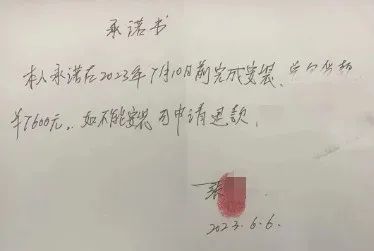 承诺书
本人承诺在2023年7月10日前完成安装、货款
¥7600元,如不能安装可申请退款,
张
2023.6.6.